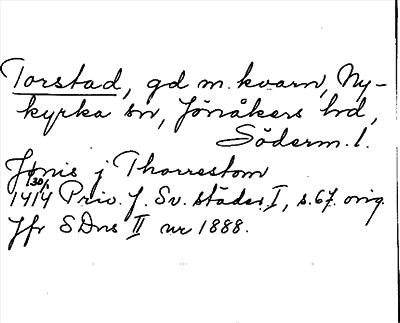 Torstad, gd m. kvarn, Ny-
kyrka sn, Jönåkers hd,
Söderm. l.
Jönis j Thorrestom
1414 30/1 Priv. f. Sv. städer I, s. 67. orig.
Jfr SDns II nr 1888.